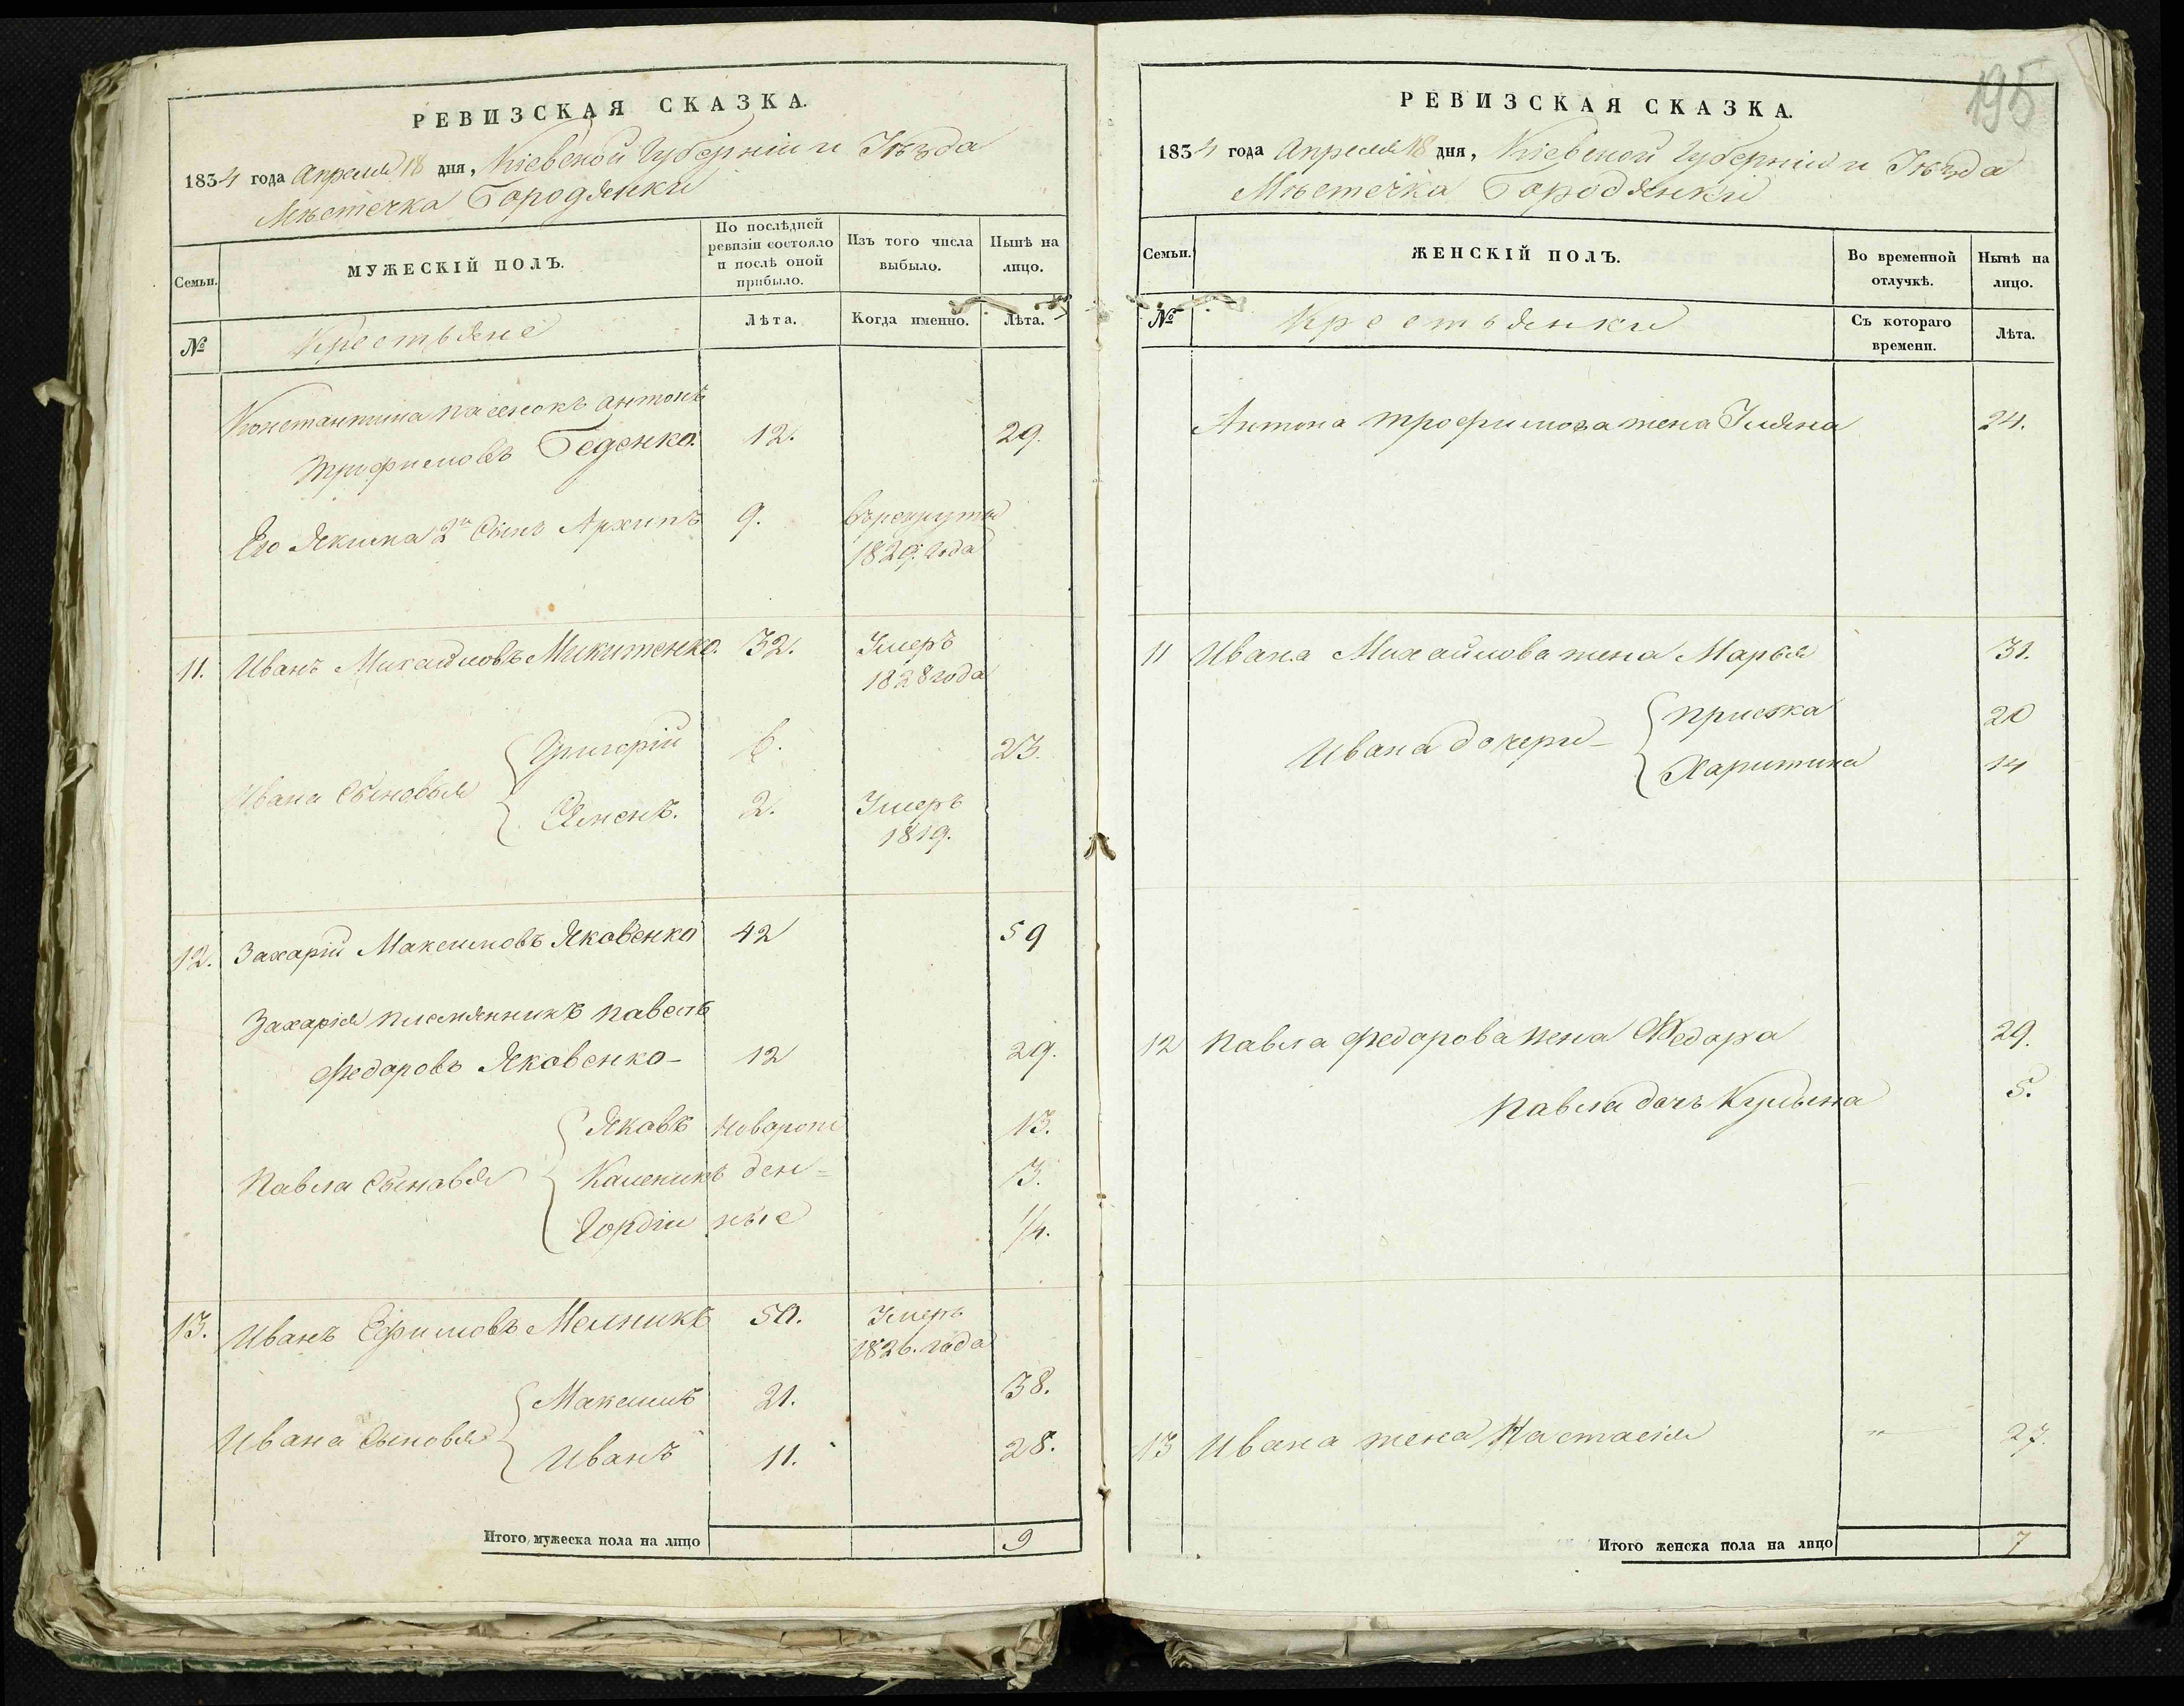 РЕВИЗСКАЯ СКАЗКА.
1834 года Апреля 18 дня, Кіевской Губерніи и Уѣзда
Мѣстечка Бородянки
Семьи.
МУЖЕСКІЙ ПОЛЪ.
По послѣдней ревизіи состояло и послѣ оной прибыло.
Изъ того числа выбыло.
Нынѣ на лицо.
№
Крестьяне
Лѣта.
Когда именно.
Лѣта.
Константина пасенокъ антонъ
трофимовъ Беденко. 12. 29.
Его Якима 2й Сынъ Архипъ 9. въ рекруты
1829. года
11. Иванъ Михайловъ Микитенко. 32. Умеръ
1828 года
Ивана Сыновья
Григорій 6. 23.
Семенъ. 2. Умеръ
1819.
12. Захарій Максимовъ Яковенко 42 59
Захарія племянникъ павелъ
Федоровъ Яковенко 12 29.
Павла Сыновья
Яковъ новорож 13.
Каленикъ ден= 3.
Гордій ные 1/4.
13. Иванъ Ефимовъ Мелникъ 50. Умеръ
1826. года
Ивана Сыновья
Максимъ 21. 38.
Иванъ 11. 28.
Итого мужеска пола на лицо 9
195
РЕВИЗСКАЯ СКАЗКА.
1834 года Апреля 18 дня, Кіевской Губерніи и Уѣзда
Мѣстечка Бородянки
Семьи.
ЖЕНСКІЙ ПОЛЪ.
Во временной отлучкѣ.
Нынѣ на лицо.
№
Крестьянки
Съ котораго времени.
Лѣта.
Антона трофимова жена Уляна 24.
11 Ивана Михайлова жена Марья 31.
Ивана дочери
приска 20
Харитина 14
12 павла федорова жена Федора 29.
павла дочъ Кулына 5.
13 Ивана жена Настасія " 27.
Итого женска пола на лицо 7